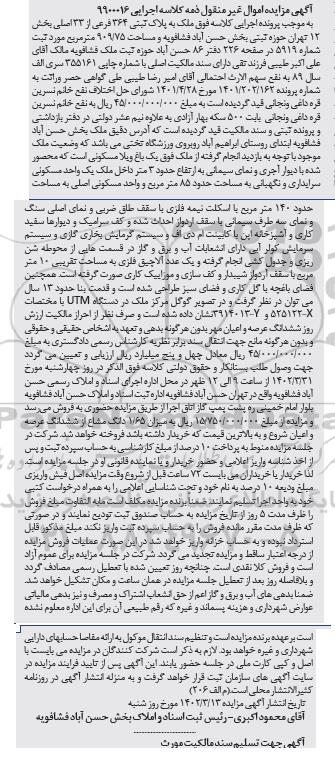 آگهی مزایده اموال غیر منقول ذمه کلاسه اجرایی ۹۹۰۰۰۱۶
به موجب پرونده اجرایی کلاسه فوق ملک به پلاک ثبتی ۳۶۴ فرعی از ۳۳ اصلی بخش
۱۲ تهران حوزه ثبتی بخش حسن آباد فشافویه و مساحت ۹۰۹/۷۵ مترمربع مورد ثبت
شماره ۵۹۱۹ در صفحه ۲۲۶ دفتر ۸۶ حسن آباد حوزه ثبت ملک فشافویه مالک آقای
علی اکبر طیبی فرزند تقی دارای سند مالکیت اصلی با شماره چاپی ۳۵۵۱۶۱ سری الف
سال ۸۹ به نفع سهم الارث احتمالی آقای امیر رضا طیبی طی گواهی حصر وراثت به
شماره پرونده ۱۴۰۱/۲۰۲/۱۶۲ مورخ ۱۴۰۱/۴/۲۸ شرح حل اختلاف نفع خانم نسرین
قره داغی ونجانی قید گردیده است به مبلغ ۴۵/۰۰۰/۰۰۰/۰۰۰ ریال به نفع خانم نسرین
قره داغی ونجانی بابت ۵۰۰ سکه بهار آزادی به علاوه نیم عشر دولتی در دفتر بازداشتی
و پرونده ثبتی و سند مالکیت قید گردیده است که آدرس دقیق ملک بخش حسن آباد
فشافویه ابتدای روستای ابراهیم آباد روبروی ورزشگاه تختی می باشد که وضعیت ملک
موجود با توجه به بازدید انجام گرفته از ملک فوق یک باغ ویلا مسکونی است که محصور
شده با دیوار آجری و نمای سیمانی به ارتفاع حدود ۳ متر داخل ملک یک واحد مسکونی
سرایداری و نگهبانی به مساحت حدود ۸۵ متر مربع و واحد مسکونی اصلی به مساحت
حدود ۱۴۰ متر مربع با اسکلت نیمه فلزی با سقف طاق ضربی و نمای اصلی سنگ
و نمای سه طرف سیمانی با سقف اردواز احداث شده و کف سرامیک و دیوارها سفید
کاری و آشپزخانه اپن با کابینت ام دی اف و سیستم گرمایش بخاری گازی و سیستم
سرمایش کولر آبی دارای انشعابات آب و برق و گاز در قسمت هایی از محوطه شن
ریزی و جدول کشی انجام گرفته و یک عدد آلاچیق فلزی به مساحت تقریبی ۱۰ متر
مربع با سقف آردواز شیبدار و کف سازی و موزاییک کاری صورت گرفته است. همچنین
فضای باغچه با گل کاری و فضای سبز طراحی شده است و قدمت بنا حدود ۱۳ سال
می توان در نظر گرفت و در تصویر گوگل مرکز ملک در دستگاه UTM با مختصات
X=۵۲۵۱۲۲ و Y=۳۹۱۴۰۱۳ نشان داده شده است و صرف نظر از احراز مالکیت ارزش
روز ششدانگ عرصه و اعیان مهر بدون هر گونه بدهی و تعهد به اشخاص حقیقی و حقوقی
و بدون هر گونه مانع جهت انتقال سند برابر نظریه کارشناس رسمی دادگستری به مبلغ
۴۵/۰۰۰/۰۰۰/۰۰۰ ریال معادل چهل و پنج میلیارد ریال ارزیابی و تعیین می گردد
جهت وصول طلب بستانکار و حقوق دولتی کلاسه فوق الذکر در روز چهارشنبه مورخ
۱۴۰۲/۳/۳۱ از ساعت ۹ الی ۱۲ ظهر در محل اداره اجرای اسناد و املاک رسمی حسن
آباد فشافویه واقع در تهران حسن آباد فشافویه اداره ثبت اسناد و املاک حسن آباد فشافویه
بلوار امام خمینی ره پشت پمپ گاز اتاق اجرا از طریق مزایده حضوری به فروش می رسد
و مزایده از مبلغ ۱۵/۷۵۰/۰۰۰/۰۰۰ ریال به میزان ۱/۶۵ دانگ مشاع از ششدانگ عرصه
و اعیان شروع و به بالاترین قیمت که خریدار داشته باشد فروخته خواهد شد. شرکت در
جلسه مزایده منوط به پرداخت ۱۰ درصد از مبلغ کارشناسی به حساب سپرده ثبت و پس
از اخذ شناسه واریز اعلامی و حضور خریدار و یا نماینده قانونی او در جلسه مزایده است.
لذا خریدار یا خریداران می بایست ۷۲ ساعت قبل از شروع وقت مزایده اصل فیش واریزی
مبلغ ودیعه ۱۰ درصد به نام خود و تحت شناسایی اعلامی را به همراه درخواست کتبی
خود به واحد اجرا تسلیم نمایند. ضمنا برنده مزایده مکلف است مابه التفاوت مبلغ فروش
را ظرف مدت ۵ روز از تاریخ مزایده به حساب صندوق ثبت تودیع نمایند و در صورتی
که ظرف مدت مقرر مانده فروش را به حساب سپرده ثبت واریز نکند مبلغ مذکور قابل
استرداد نبوده و به حساب خزانه واریز خواهد شد. در این صورت عملیات فروش مزایده
از درجه اعتبار ساقط و مزایده تجدید می گردد. شرکت در جلسه مزایده برای عموم آزاد
است و فروش کلا نقدی است. چنانچه روز تعیین شده با تعطیل رسمی مصادف گردد
و بلافاصله روز بعد از تعطیل جلسه مزایده در همان ساعت و مکان تشکیل خواهد شد.
ضمنا بدهی های آب و برق و گاز اعم از حق انشعاب اشتراک و مصرف و نیز بدهی مالیاتی
عوارض شهرداری و هزینه پسماند و غیره که رقم قطعیی آن برای این اداره معلوم نشده
است بر عهده برنده مزایده است و تنظیم سند انتقال موکول به ارائه مفاصا حسابهای دارایی
شهرداری و غیره خواهد بود. لازم به ذکر است شرکت کنندگان در مزایده می بایست با
اصل و کپی کارت ملی در جلسه حضور یابند. این آگهی پس از تایید فرایند مزایده در
سایت آگهی های سازمان ثبت قرار خواهد گرفت و به منزله انتشار آگهی در روزنامه
کثیرالانتشار محلی است. (م الف ۲۰۶)
تاریخ انتشار آگهی مزایده ۱۴۰۲/۳/۱۳ مورخ روز شنبه
آقای محمود اکبری – رئیس ثبت اسناد و املاک بخش حسن آباد فشافویه
آگهی جهت تسلیم سند مالکیت مورث